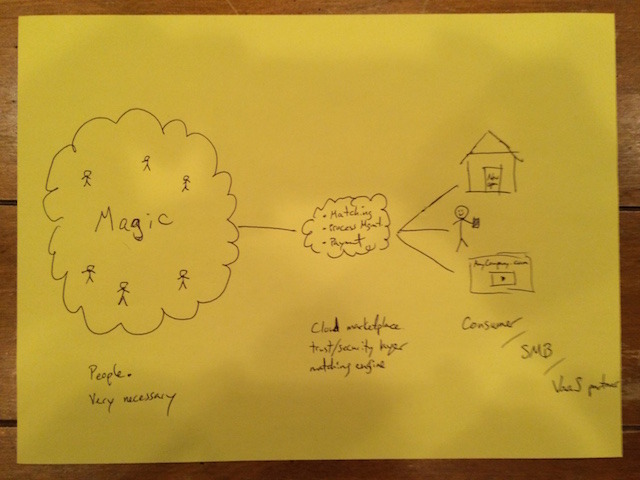 Magic
• Matching
• Process Mgmt
• Payment
AnyCompany.com
People.
Very necessary
Cloud marketplace
trust/security layer
matching engine
Consumer /
SMB /
VaaS partner